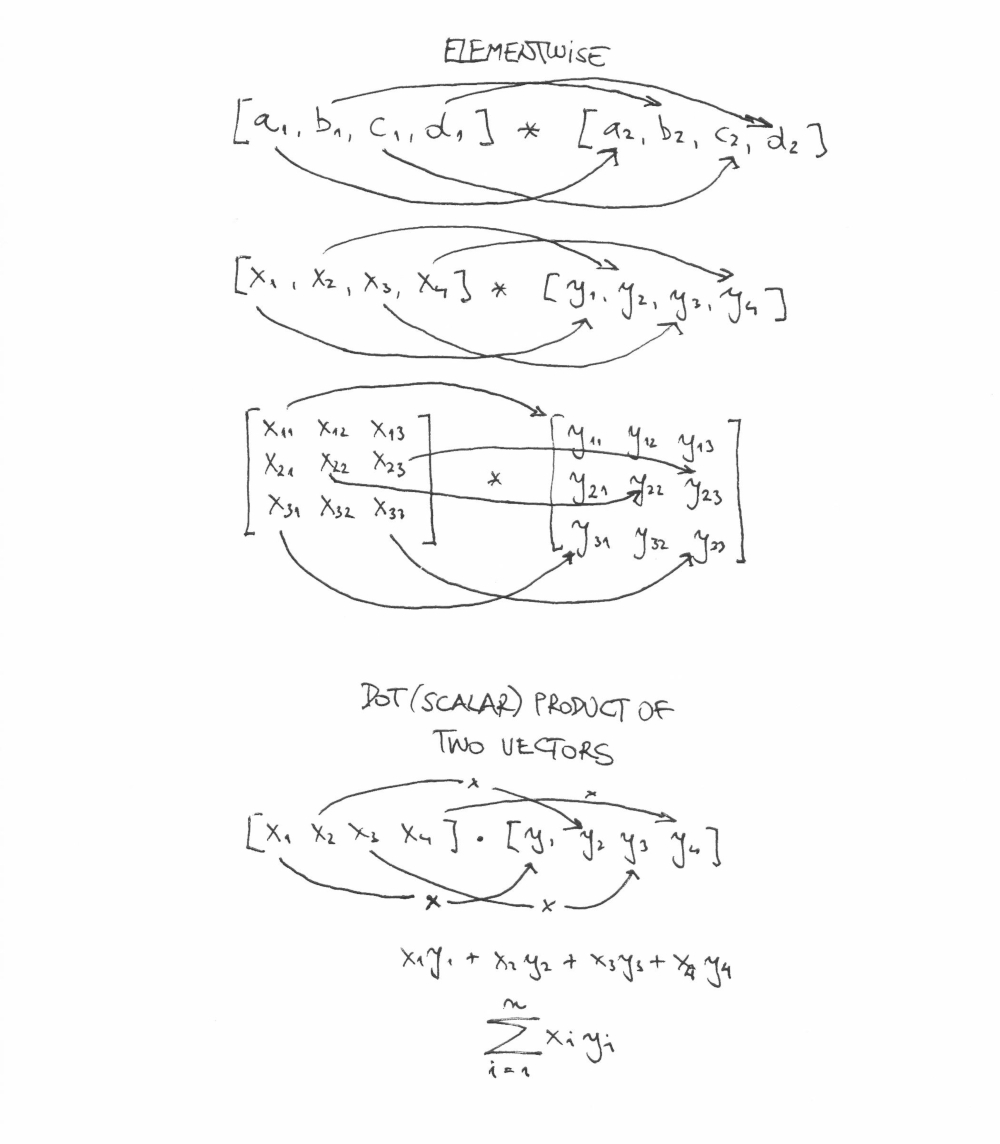 ELEMENTWISE
[a₁, b₁, c₁, d₁] * [a₂, b₂, c₂, d₂]
[x₁, x₂, x₃, x₄] * [y₁, y₂, y₃, y₄]
[x₁₁ x₁₂ x₁₃ [y₁₁ y₁₂ y₁₃
x₂₁ x₂₂ x₂₃ * y₂₁ y₂₂ y₂₃
x₃₁ x₃₂ x₃₃] y₃₁ y₃₂ y₃₃]
DOT (SCALAR) PRODUCT OF
TWO VECTORS
x x
[x₁ x₂ x₃ x₄] · [y₁ y₂ y₃ y₄]
x x
x₁y₁ + x₂y₂ + x₃y₃ + x₄y₄
n
∑ xᵢyᵢ
i=1